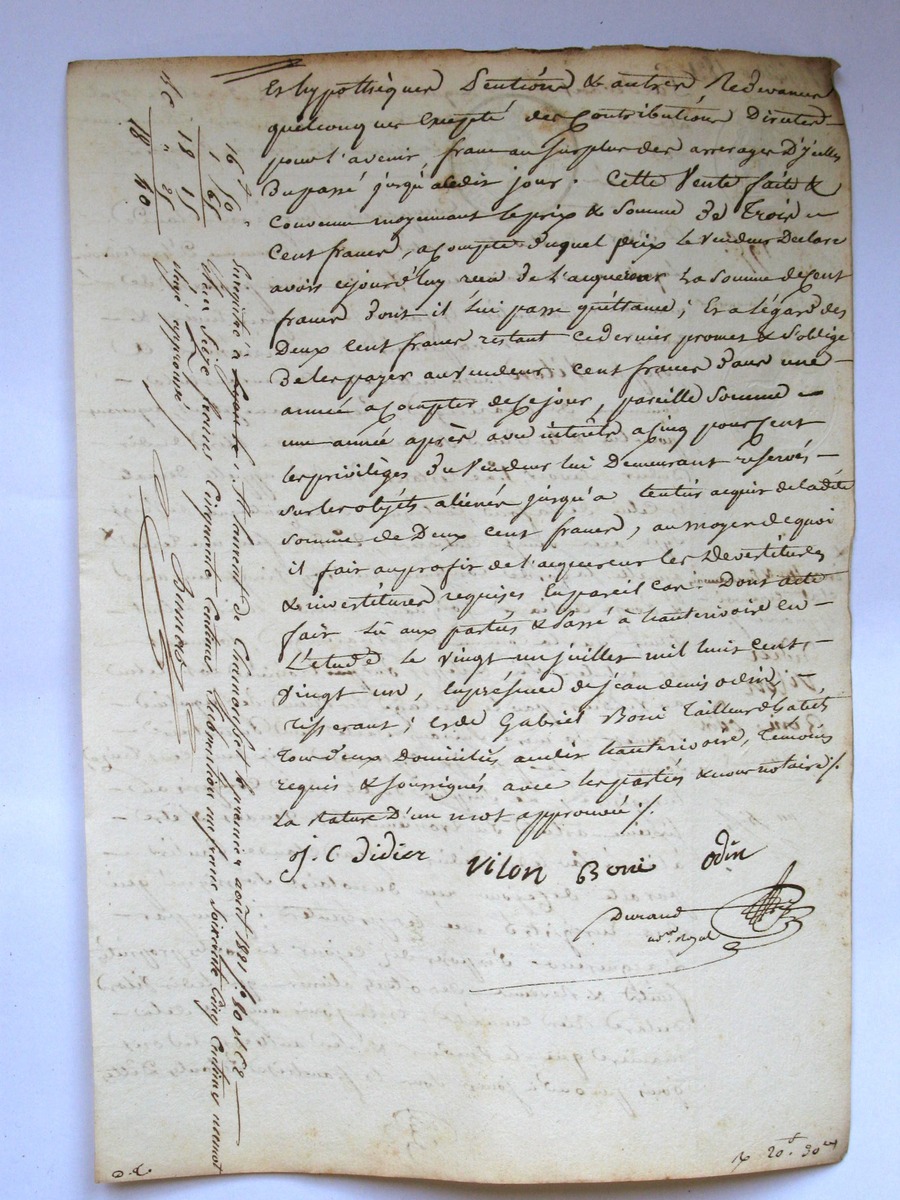 Et hypothèques Rentière & autres Redevances
quelconques Excepté des Contributions Directes
pour l'avenir, franc au Surplus des arrerages D'ycelles
Du passé jusqu'a ledit jour. Cette Vente faite &
Convenue moyennant le prix & Somme De Trois
Cent francs, a Compte Duquel prix le Vendeur Declare
avoir cejourd'huy reçu De l'acquereur La Somme de Cent
francs Dont il Lui passe quittance; Et a légard des
Deux Cent francs restant Ce dernier promet & S'oblige
De les payer au Vendeur Cent francs Dans une
année a Compter de Ce jour, pareille Somme
une année après avec intérêts a Cinq pour Cent
les priviléges Du Vendeur lui Demeurant réservés
Sur les objets alienés jusqu'a l'entier acquit de ladite
Somme de Deux Cent francs, au moyen de quoi
il fait au profit de l'acquereur les Devestitures
& investitures requises En pareil Cas. Dont acte
fait Lû aux parties & Passé à hauterivoire En
L'etude Le vingt un juillet mil huit Cent
vingt un, En présence de jean denis odin
tisserant; et de Gabriel Boni Tailleur d'habits
Tous Deux Domiciliés audit hauterivoire, Temoins
requis & Soussignés avec les parties & nous notaire /.
La rature D'un mot approuvée /.
J. C Didier Vilon Boni Odin
Durand
not.re royal
16 f 50
1 65
18 15
" 25
18 40
Enregistré à St Laurent de Chamousset le premier août 1821 f.o 80 v.o C.e 2
Reçu Seize francs Cinquante Centimes Subvention un franc Soixante Cinq Centimes
rayé approuvé
20 f. 30 ces